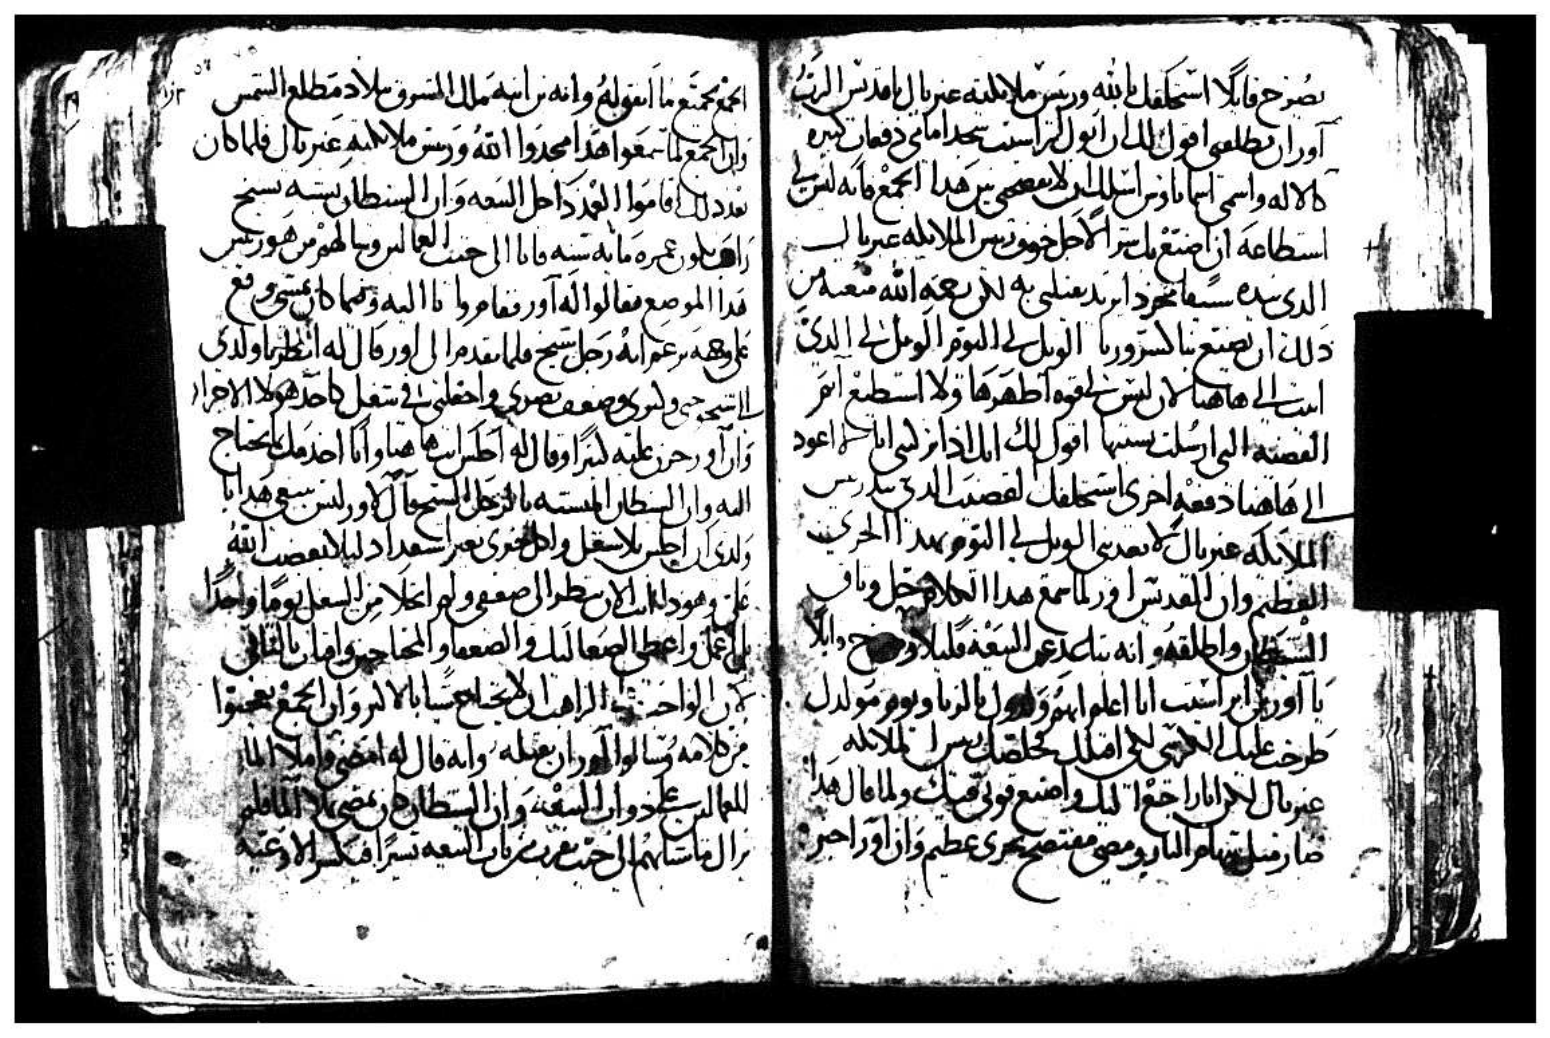 يصرخ قايلا استحلفك بالله وريس ملايكته غبريال يا قديس الرب
اور ان تطلقني اقول لك ان ابول ابراسيت سجد امامي دفعات كثيره
كالاله واسمي اسما ياوس اسلك ان لا تفضحني بين هدا الجمع فانه ليس لي
استطاعه ان اصنع بك شرا لاجل خوف ريس الملايكه غبريال
الدي بيده سيفا مجرد ايريد يقتلني به لكن رحمه الله منعته من
ذلك ان يصنع بنا كسرورنا الويل لي اليوم الويل لي الدي
اتيت الى هاهنا لان ليس لي قوه اطهرها ولا استطيع اتم
القضيه التي ارسلت بسببها اقول لك انك اذا تركتني انا لا اعود
الى هاهنا دفعه اخرى استحلفك القضيب الدي بيد ريس
الملايكه غبريال لا تعدبني الويل لي اليوم بهدا الخزي
العظيم وان القديس اور لما سمع هدا الكلام خجل وباق
الشيطان واطلقه وانه تباعد عن البيعه قليلا وصرخ قايلا
يا اور بن ابراسيت انا اعلم انهم ولدوك بالزنا ويوم مولدك
طرحت عليك الكرسي لكي اقتلك فخلصك ريس الملايكه
غبريال لكن انا راجع اليك واصنع قوتي فيك ولما قال هدا
صار مثل شهاب النار ومضى مفتضح بخزي عظيم وان اور اخبر
الجمع جميع ما اتفق له وانه من ابنه ملك الشرق بلاد مطلع الشمس
وان الجمع لما سمعوا هدا مجدوا الله وريس ملايكته غبريال فلما كان
بعد ذلك اقاموا العمد داخل البيعه وان الشيطان تشبه بشيخ
راهب يكون عمره مايه سنه فاتا الى حيث العمالين وسالهم من هو ريس
هدا الموضع فقالوا له اور فقام وا اتا اليه وفيما كان يمشي وقع
على وجهه يزعم انه رجل شيخ فلما تقدم الى اور قال له انظر يا ولدي
الى شيخوختي وكبري وضعف بصري واجعلني في شغل كاحد هولا الاحرار
وان اور حزن عليه كثيرا وقال له اجلس انت هاهنا وانا اخدمك بما يحتاج
اليه وان الشيطان المتشبه بالرجل الشيخ قال لاور ليس ينبغي هدا يا
ولدي ان اجلس بلا شغل واكل خبزي بغير استعداد ليلا يغضب الله
علي وهوداانت الان تنظر الى ضعفي ولم اتخلا من الشغل يوما واحدا
بل اعمل واعطي الصعاليك والضعفا والمحتاجين واقتات بالباقي
لان الواجب على الراهب ان لا يحتاج شيا بالاكثر وان الجمع تعجبوا
من كلامه وسالوا اور ان يقبله وانه قال له امضي واملا الما
للعمالين على دوان البيعه وان الشيطان كان يمضي يملا الما فلم
يزال ماشيا بهم الى حيث يقرب من باب البيعه يسيرا فيكسر الاوعيه